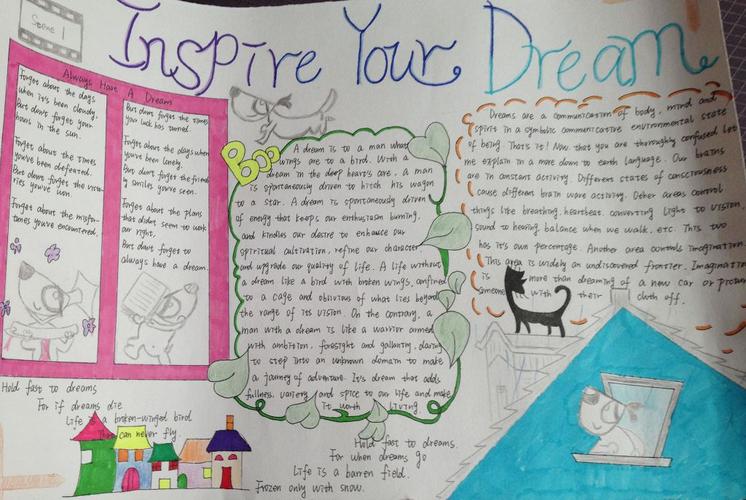 Scene 1
Inspire Your Dream
Always Have A Dream
Forget about the days
when it's been cloudy.
But don't forget your
hours in the sun.
Forget about the times
you've been defeated.
But don't forget the victo-
ries you've won.
Forget about the misfor-
tunes you've encountered.
But don't forget the times
your luck has turned.
Forget about the days when
you've been lonely.
But don't forget the friend-
ly smiles you've seen.
Forget about the plans
that didn't seem to work
out right.
But don't forget to
always have a dream.
Boo
A dream is to a man what
wings are to a bird. With a
dream in the deep heart's care, a man
is spontaneously driven to hitch his wagon
to a star. A dream is spontaneously driven
of energy that keeps our enthusiasm burning,
and kindles our desire to enhance our
spiritual cultivation, refine our character
and upgrade our quality of life. A life without
a dream like a bird with broken wings, confined
to a cage and oblivious of what lies beyond
the range of its vision. On the contrary, a
man with a dream is like a warrior armed
with ambition, foresight and gallantry, daring
to step into an unknown domain to make
a journey of adventure. It's dream that adds
fullness, variety and spice to our life and make
it worth living
Dreams are a communication of body, mind and
spirit in a symbolic communicative environmental state
of being. That's it! Now that you are thoroughly confused, let
me explain in a more down to earth language. Our brains
are in constant activity. Different states of consciousness
cause different brain wave activity. Other areas control
things like breathing, heartbeat, converting light to vision,
sound to hearing, balance when we walk, etc. This two
has it's own percentage. Another area controls imagination
This area is widely an undiscovered frontier. Imagination
is more than dreaming of a new car or
someone with their cloth off.
Hold fast to dreams
For if dreams die
Life is a broken-winged bird
That can never fly.
Hold fast to dreams.
For when dreams go
Life is a barren field.
Frozen only with snow.